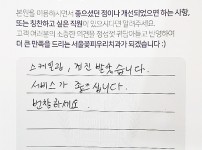 본원을 이용하시면서 좋으셨던 점이나 개선되었으면 하는 사항,
또는 칭찬하고 싶은 직원이 있으시다면 알려주세요.
고객 여러분의 소중한 의견을 정성껏 귀담아듣고 반영하여
더 큰 만족을 드리는 서울꽃피우리치과가 되겠습니다 :)
스케일링, 검진 받았습니다.
서비스가 좋으십니다.
번창하세요.